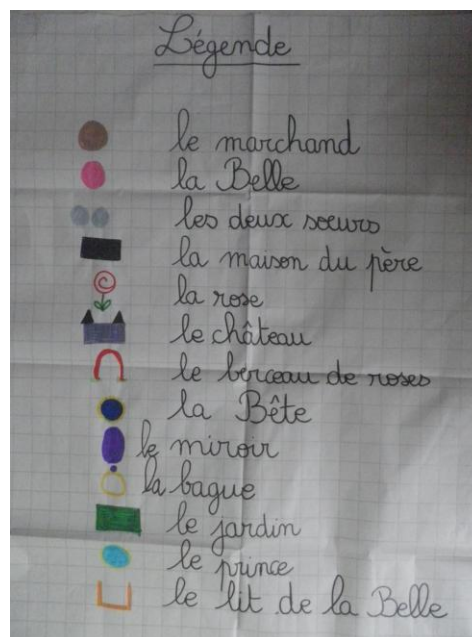 Légende
le marchand
la Belle
les deux sœurs
la maison du père
la rose
le château
le berceau de roses
la Bête
le miroir
la bague
le jardin
le prince
le lit de la Belle